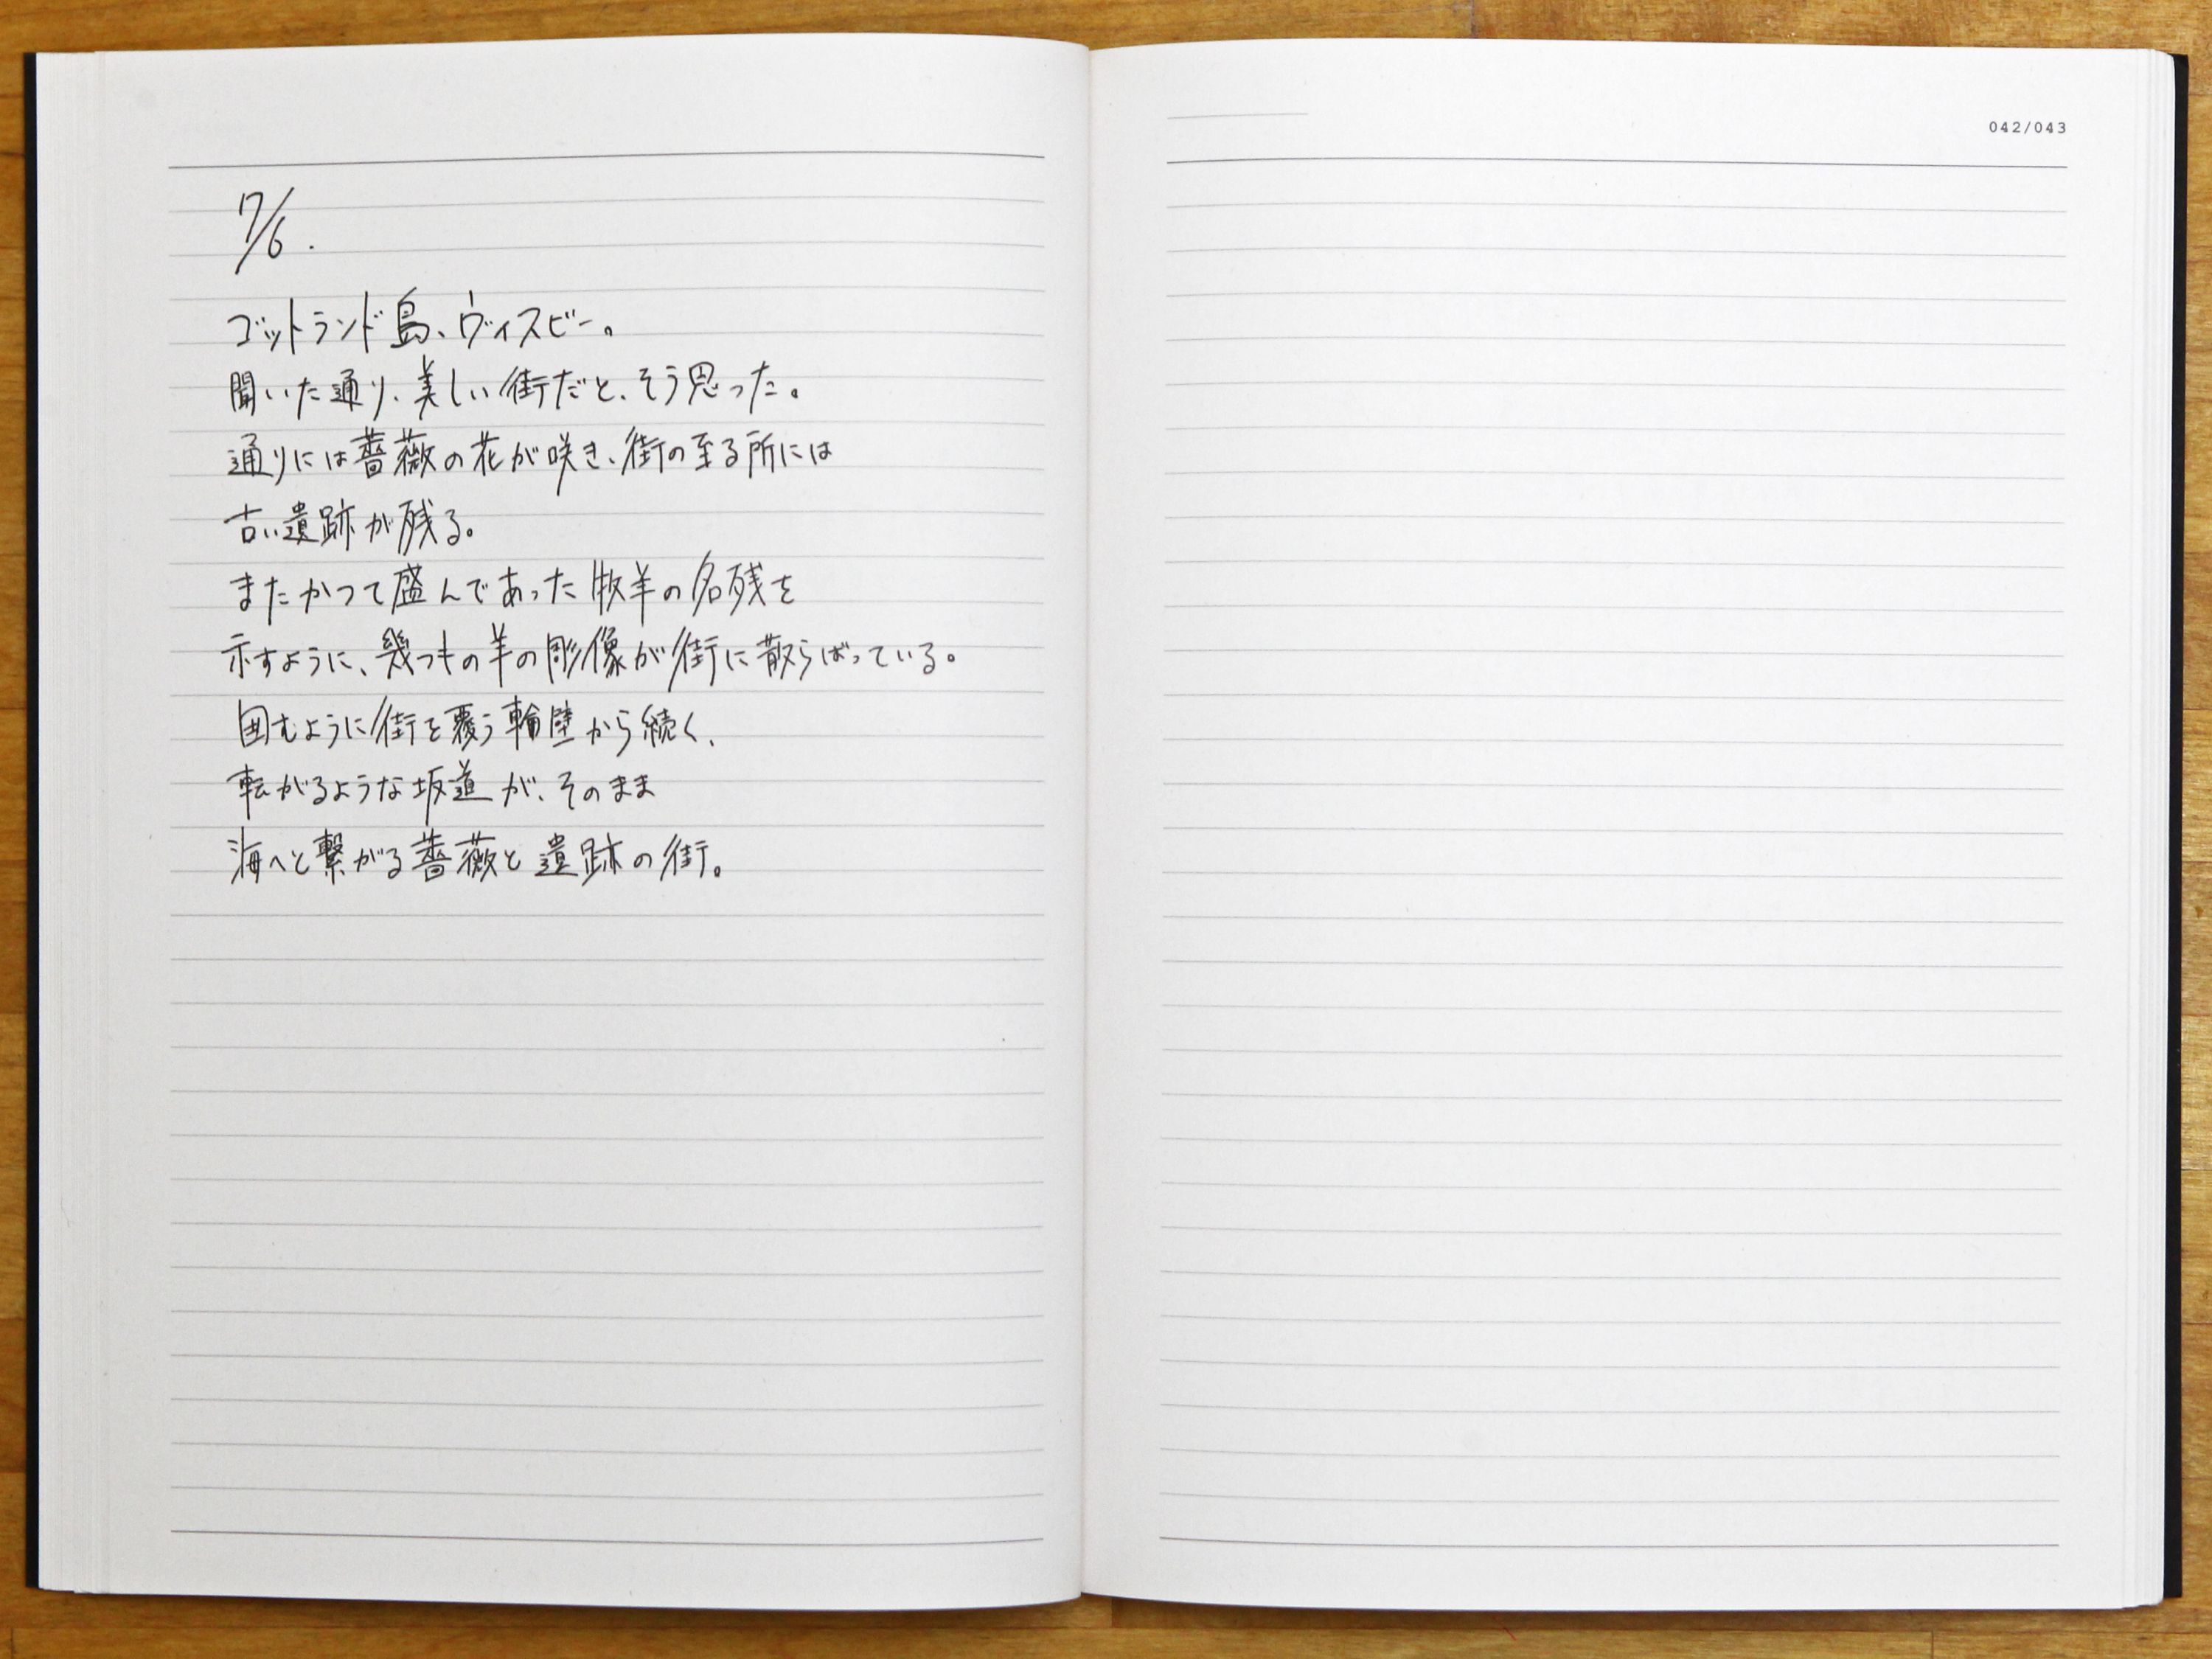 7/6.
ゴットランド島、ヴィスビー。
聞いた通り、美しい街だと、そう思った。
通りには薔薇の花が咲き、街の至る所には
古い遺跡が残る。
またかつて盛んであった牧羊の名残を
示すように、幾つもの羊の彫像が街に散らばっている。
囲むように街を覆う輪壁から続く、
転がるような坂道が、そのまま
海へと繋がる薔薇と遺跡の街。
042/043